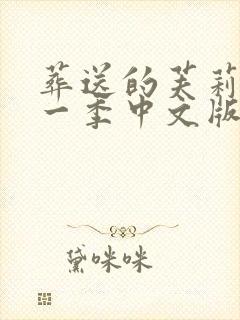 葬送的芙莉
一季中文版
黛咪咪